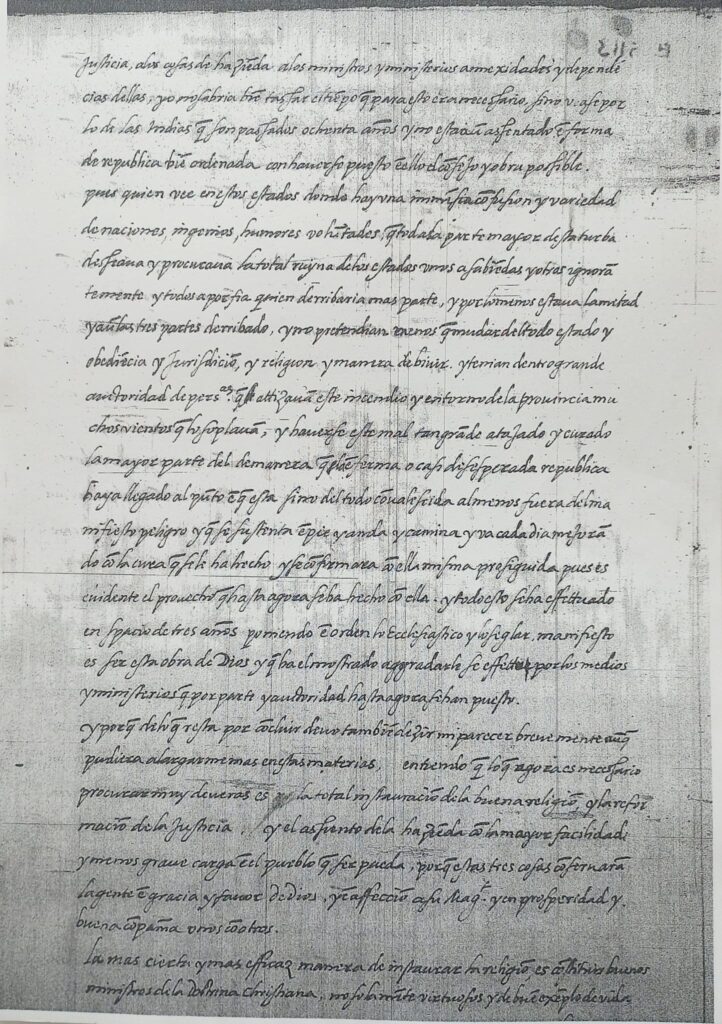 Justicia, a los cosas de hazieda a los ministros y ministerios annexidades y dependē
cias dellas, yo no sabria biē tassar el tiēpo q̄ para esto era necessario, sino vease por
lo de las Indias q̄ son passados ochenta años y no estā aū assentado ē forma
de republica biē ordenada con haverse puesto ē ello el cōsejo y obra possible.
pues quien vee en estos estados donde hay vna immēsa cōfusion y variedad
de naciones, ingenios, humores volūtades, q̄ toda la parte mayor desta turba
desseava y procurava la total ruyna de los estados vnos a sabiēdas y otros ignorā
temente y todos a porfia quien derribaria mas parte, y por lo menos estava la metad
y aū las tres partes derribado, y no pretendian menos q̄ mudar del todo estado y
obediēcia y Jurisdiciō, y religion y manera de bivir. y tenian dentro grande
auctoridad de persas. q̄ attizavā este incendio y en torno de la provincia mu
chos vientos q̄ lo soplavā, y haverse este mal tan grāde atajado y curado
la mayor parte del de manera q̄ la ēferma o casi desesperada republica
haya llegado al pūto ē q̄ esta sino del todo cōvalescida al menos fuera del ma
nifiesto peligro y q̄ se sustenta ē pie y anda y camina y va cada dia mejorā
do cō la cura q̄ se le ha hecho y se cōfirmara cō ella misma prosiguida pues es
evidente el provecho q̄ hasta agora se ha hecho cō ella. y todo esto se ha effettuado
en spacio de tres años poniendo ē orden lo Ecclesiastico y lo seglar, manifiesto
es ser esta obra de Dios y q̄ ha el mostrado aggradarle se effettue por los medios
y ministerios q̄ por parte y auctoridad hasta agora se han puesto.
y porq̄ de lo q̄ resta por cōcluir devo tambiē dezir mi parecer brevemente aūq̄
pudiera alargarme mas en estas materias, entiendo q̄ lo q̄ agora es necessario
procurar muy de veras es la total instauraciō de la buena religiō, y la refor
maciō de la Justicia, y el assiento de la haziēda cō la mayor facilidad
y menos grave carga ē el pueblo q̄ ser pueda, porq̄ estas tres cosas cōservarā
la gente ē gracia y favor de Dios, y ē affecciō a su Magt. y en prosperidad y
buena cōpañia vnos cō otros.
La mas cierta y mas efficaz manera de instaurar la religiō es cōstituir buenos
ministros de la Doctrina Christiana, no solamēte virtuosos y de buē exēplo de vida